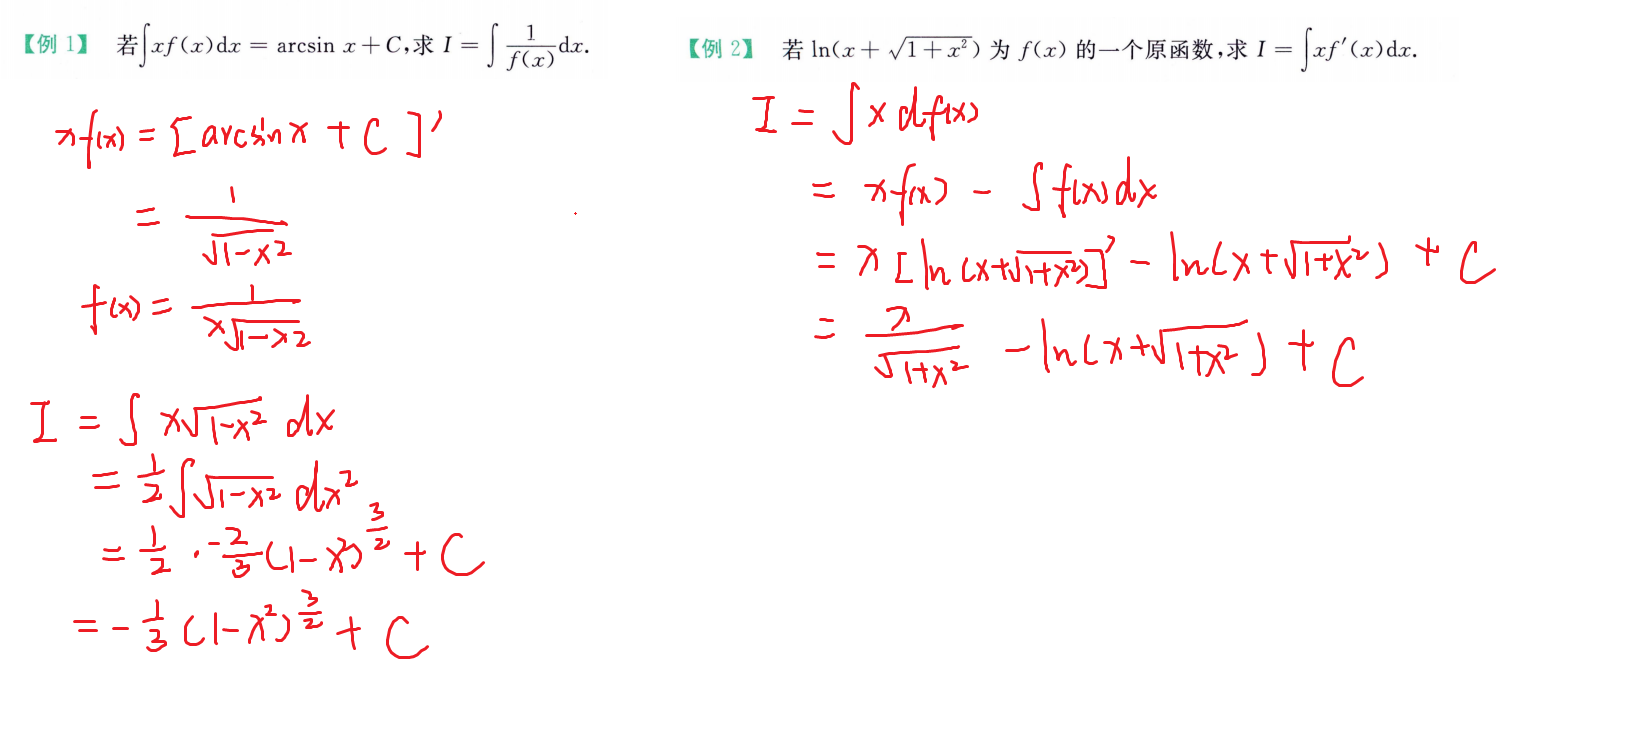 【例 1】 若∫xf(x)dx = arcsin x + C,求 I = ∫ 1/f(x) dx.
xf(x) = [arcsinx + C]′
= 1/√(1-x²)
f(x) = 1/(x√(1-x²))
I = ∫ x√(1-x²) dx
= 1/2 ∫√(1-x²) dx²
= 1/2 · -2/3 (1-x²)^(3/2) + C
= -1/3 (1-x²)^(3/2) + C
【例 2】 若 ln(x + √(1+x²)) 为 f(x) 的一个原函数,求 I = ∫xf′(x)dx.
I = ∫ x df(x)
= xf(x) - ∫f(x)dx
= x[ln(x+√(1+x²))]′ - ln(x+√(1+x²)) + C
= x/√(1+x²) - ln(x+√(1+x²)) + C